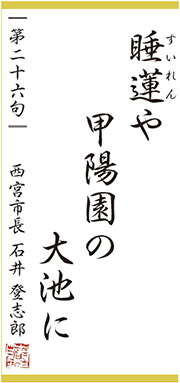 睡蓮や
すいれん
甲陽園の
大池に
第二十六句
西宮市長 石井 登志郎